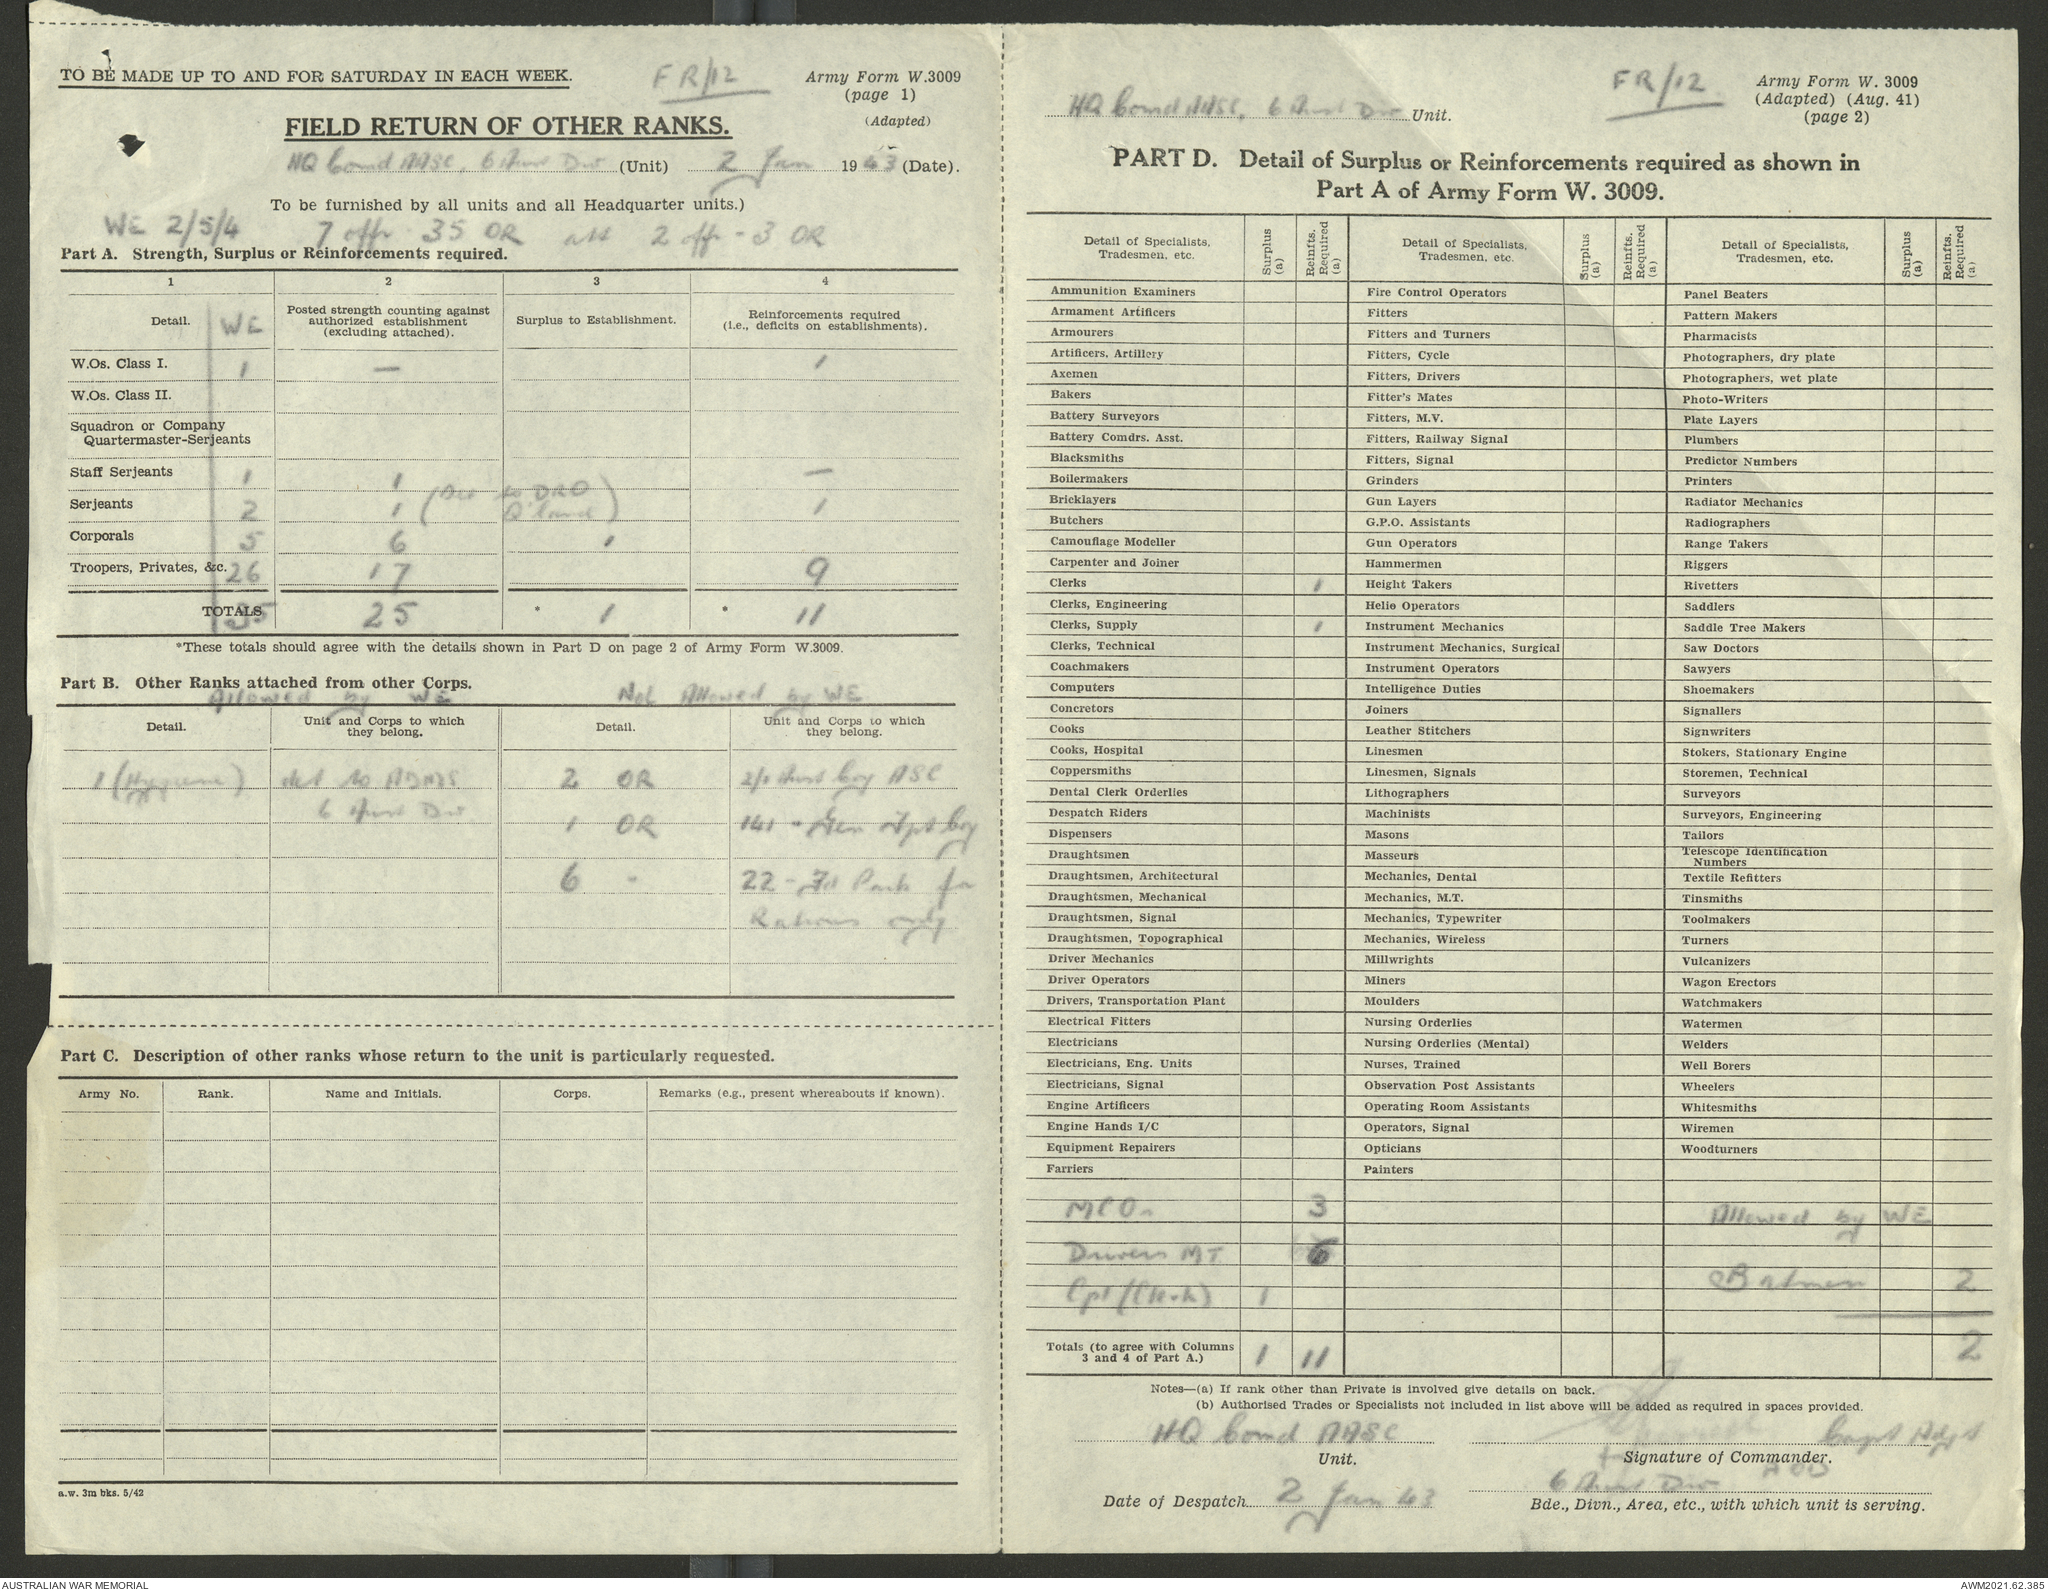 TO BE MADE UP TO AND FOR SATURDAY IN EACH WEEK.
FR/12
Army Form W.3009
(page 1)
(Adapted)
FIELD RETURN OF OTHER RANKS.
HQ Comd AASC, 6 Aust Div (Unit) 2 Jan 1943 (Date).
To be furnished by all units and all Headquarter units.)
WE 2/5/4 7 offr 35 OR att 2 offr - 3 OR
Part A. Strength, Surplus or Reinforcements required.
1 2 3 4
Detail. WE Posted strength counting against authorized establishment (excluding attached). Surplus to Establishment. Reinforcements required (i.e., deficits on establishments).
W.Os. Class I. 1 — 1
W.Os. Class II.
Squadron or Company
Quartermaster-Serjeants
Staff Serjeants 1 1 —
Serjeants 2 1 (Det to DRO Q'land) 1
Corporals 5 6 1
Troopers, Privates, &c. 26 17 9
TOTALS 35 25 * 1 * 11
*These totals should agree with the details shown in Part D on page 2 of Army Form W.3009.
Part B. Other Ranks attached from other Corps.
Allowed by WE Not Allowed by WE
Detail. Unit and Corps to which they belong. Detail. Unit and Corps to which they belong.
1 (Hygiene) det to ADMS 2 OR 2/1 Aust Coy ASC
6 Aust Div 1 OR 141 - Gen Tpt Coy
6 " 22 - Fd Park for
Rations only
Part C. Description of other ranks whose return to the unit is particularly requested.
Army No. Rank. Name and Initials. Corps. Remarks (e.g., present whereabouts if known).
a.w. 3m bks. 5/42
HQ Comd AASC, 6 Aust Div Unit.
FR/12
Army Form W. 3009
(Adapted) (Aug. 41)
(page 2)
PART D. Detail of Surplus or Reinforcements required as shown in
Part A of Army Form W. 3009.
Detail of Specialists, Tradesmen, etc. Surplus (a) Reinfts. Required (a) Detail of Specialists, Tradesmen, etc. Surplus (a) Reinfts. Required (a) Detail of Specialists, Tradesmen, etc. Surplus (a) Reinfts. Required (a)
Ammunition Examiners Fire Control Operators Panel Beaters
Armament Artificers Fitters Pattern Makers
Armourers Fitters and Turners Pharmacists
Artificers, Artillery Fitters, Cycle Photographers, dry plate
Axemen Fitters, Drivers Photographers, wet plate
Bakers Fitter's Mates Photo-Writers
Battery Surveyors Fitters, M.V. Plate Layers
Battery Comdrs. Asst. Fitters, Railway Signal Plumbers
Blacksmiths Fitters, Signal Predictor Numbers
Boilermakers Grinders Printers
Bricklayers Gun Layers Radiator Mechanics
Butchers G.P.O. Assistants Radiographers
Camouflage Modeller Gun Operators Range Takers
Carpenter and Joiner Hammermen Riggers
Clerks 1 Height Takers Rivetters
Clerks, Engineering Helio Operators Saddlers
Clerks, Supply 1 Instrument Mechanics Saddle Tree Makers
Clerks, Technical Instrument Mechanics, Surgical Saw Doctors
Coachmakers Instrument Operators Sawyers
Computers Intelligence Duties Shoemakers
Concretors Joiners Signallers
Cooks Leather Stitchers Signwriters
Cooks, Hospital Linesmen Stokers, Stationary Engine
Coppersmiths Linesmen, Signals Storemen, Technical
Dental Clerk Orderlies Lithographers Surveyors
Despatch Riders Machinists Surveyors, Engineering
Dispensers Masons Tailors
Draughtsmen Masseurs Telescope Identification Numbers
Draughtsmen, Architectural Mechanics, Dental Textile Refitters
Draughtsmen, Mechanical Mechanics, M.T. Tinsmiths
Draughtsmen, Signal Mechanics, Typewriter Toolmakers
Draughtsmen, Topographical Mechanics, Wireless Turners
Driver Mechanics Millwrights Vulcanizers
Driver Operators Miners Wagon Erectors
Drivers, Transportation Plant Moulders Watchmakers
Electrical Fitters Nursing Orderlies Watermen
Electricians Nursing Orderlies (Mental) Welders
Electricians, Eng. Units Nurses, Trained Well Borers
Electricians, Signal Observation Post Assistants Wheelers
Engine Artificers Operating Room Assistants Whitesmiths
Engine Hands I/C Operators, Signal Wiremen
Equipment Repairers Opticians Woodturners
Farriers Painters
MCOs 3 Allowed by WE
Drivers MT 6
Batmen 2
Cpl (Clerk) 1
Totals (to agree with Columns 3 and 4 of Part A.) 1 11 2
Notes—(a) If rank other than Private is involved give details on back.
(b) Authorised Trades or Specialists not included in list above will be added as required in spaces provided.
HQ Comd AASC Capt Adjt
Unit. Signature of Commander.
6 Aust Div
Date of Despatch 2 Jan 43 Bde., Divn., Area, etc., with which unit is serving.
AUSTRALIAN WAR MEMORIAL AWM2021.62.385